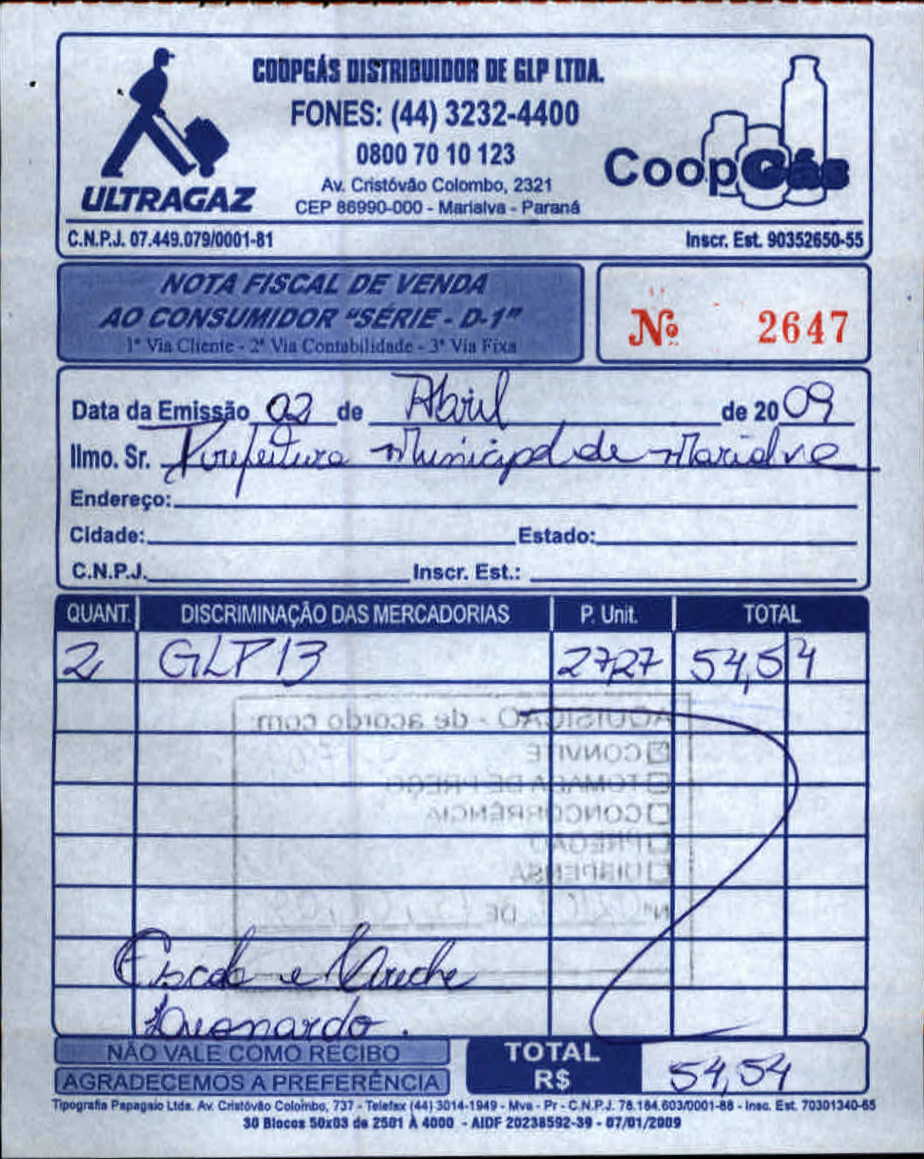 COOPGÁS DISTRIBUIDOR DE GLP LTDA.
FONES: (44) 3232-4400
0800 70 10 123
Av. Cristóvão Colombo, 2321
CEP 86990-000 - Marialva - Paraná
ULTRAGAZ
CoopGás
C.N.P.J. 07.449.079/0001-81 Inscr. Est. 90352650-55
NOTA FISCAL DE VENDA
AO CONSUMIDOR "SÉRIE - D-1"
1ª Via Cliente - 2ª Via Contabilidade - 3ª Via Fixa
Nº 2647
Data da Emissão 02 de Abril de 2009
Ilmo. Sr. Prefeitura Municipal de Marialva
Endereço:
Cidade: Estado:
C.N.P.J. Inscr. Est.:
QUANT. DISCRIMINAÇÃO DAS MERCADORIAS P. Unit. TOTAL
2 GLP 13 27,27 54,54
AQUISIÇÃO - de acordo com:
CONVITE
TOMADA DE PREÇO
CONCORRÊNCIA
PREGÃO
DISPENSA
Nº DE
Escola e Creche
Leonardo.
NÃO VALE COMO RECIBO
AGRADECEMOS A PREFERÊNCIA
TOTAL R$ 54,54
Tipografia Papagaio Ltda. Av. Cristóvão Colombo, 737 - Telefax (44) 3014-1949 - Mva - Pr - C.N.P.J. 78.184.603/0001-88 - Insc. Est. 70301340-65
30 Blocos 50x03 de 2501 À 4000 - AIDF 20238592-39 - 07/01/2009